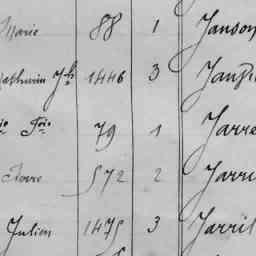 Marie 88 1 Janson
Mathurin Jh 1446 3
79 1 Jarre
Pierre 572 2 Jarri
Julien 1475 3 Jarril